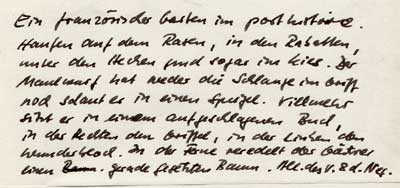 Ein französischer Garten im posthistoire.
Haufen auf dem Rasen, in den Rabatten,
unter den Hecken und sogar im Kies. Der
Maulwurf hat weder die Schlange im Griff
noch schaut er in einen Spiegel. Vielmehr
sitzt er in einem aufgeschlagenen Buch,
in der Rechten den Griffel, in der Linken den
In der Ferne veredelt der Gärtner
einen gerade gesetzten Baum.